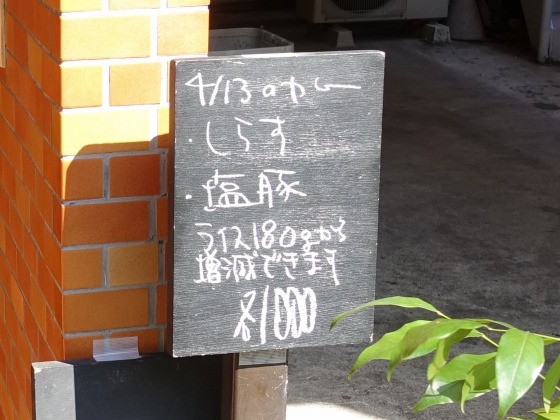 4/13のカレー
・しらす
・塩豚
ライス180gから
増減できます
各1000